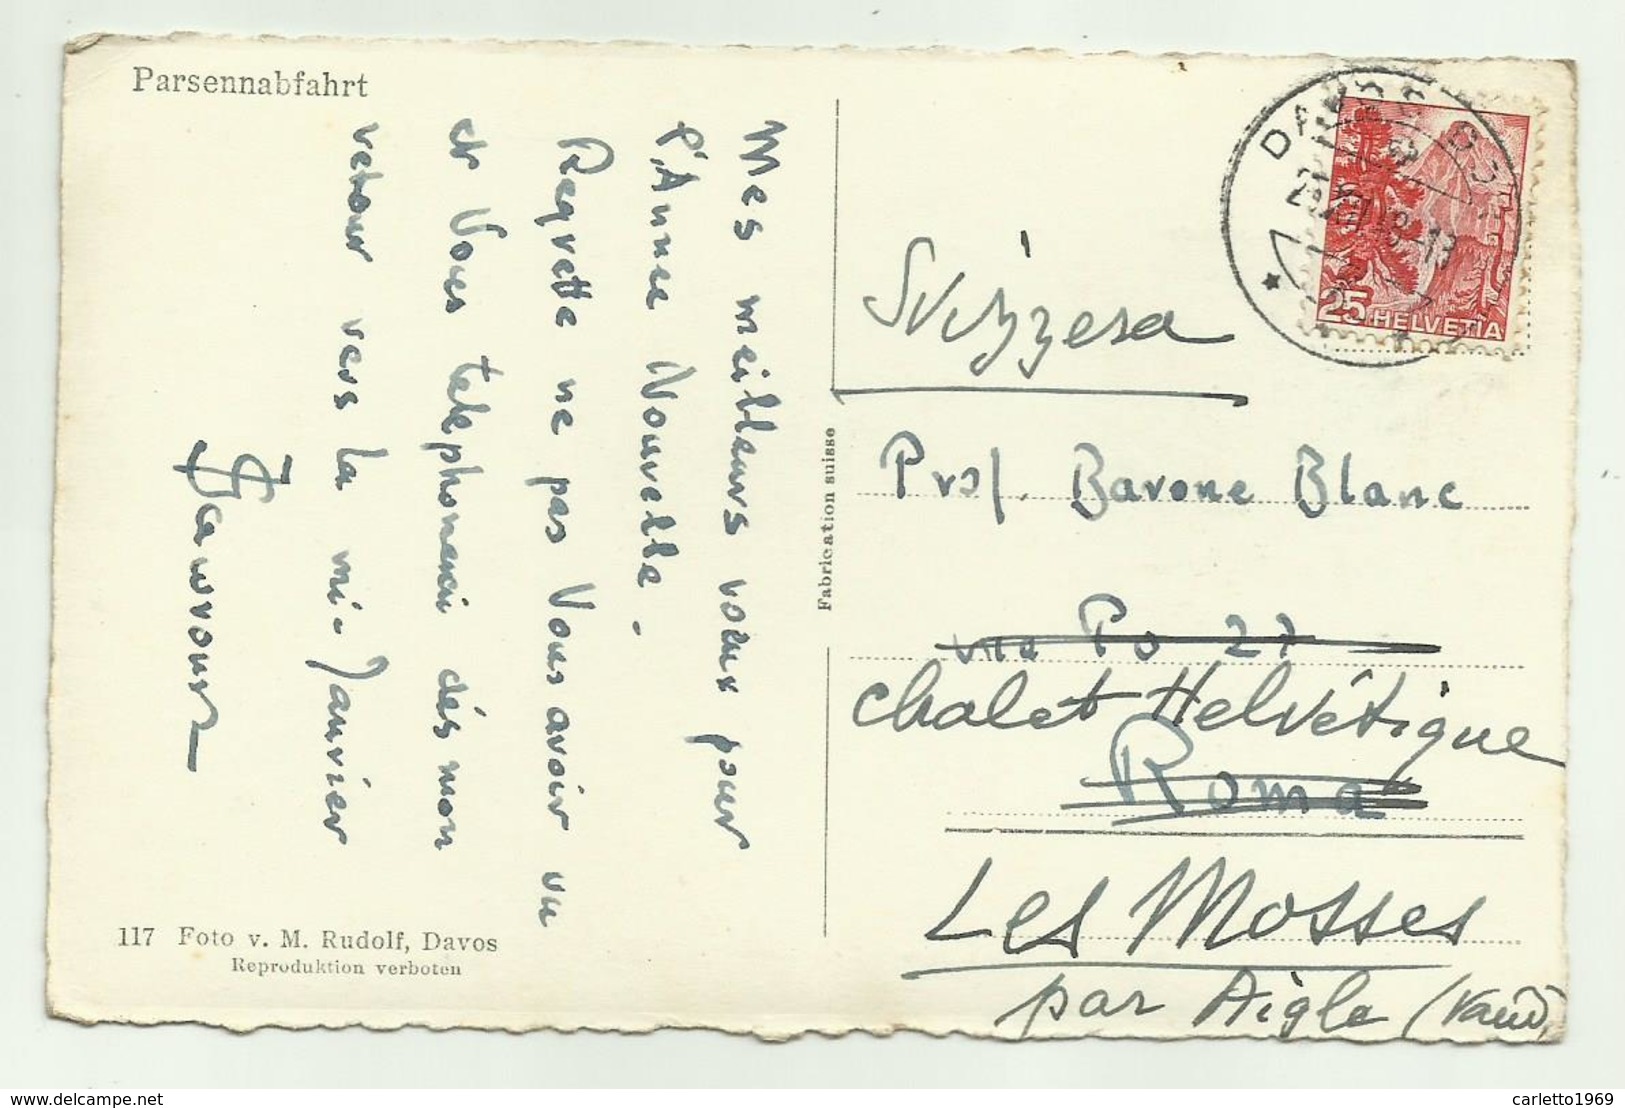 Parsennabfahrt
Mes meilleurs vœux pour
l'Année Nouvelle.
Regrette ne pas Vous avoir vu
et Vous telephonerai dés mon
retour vers la mi-Janvier
117 Foto v. M. Rudolf, Davos
Reproduktion verboten
Fabrication suisse
DAVOS
25 HELVETIA
Svizzera
Prof. Barone Blanc
via Po 27
Chalet Helvêtique
Roma
Les Mosses
par Aigle (Vaud)
delcampe.net
carletto1969